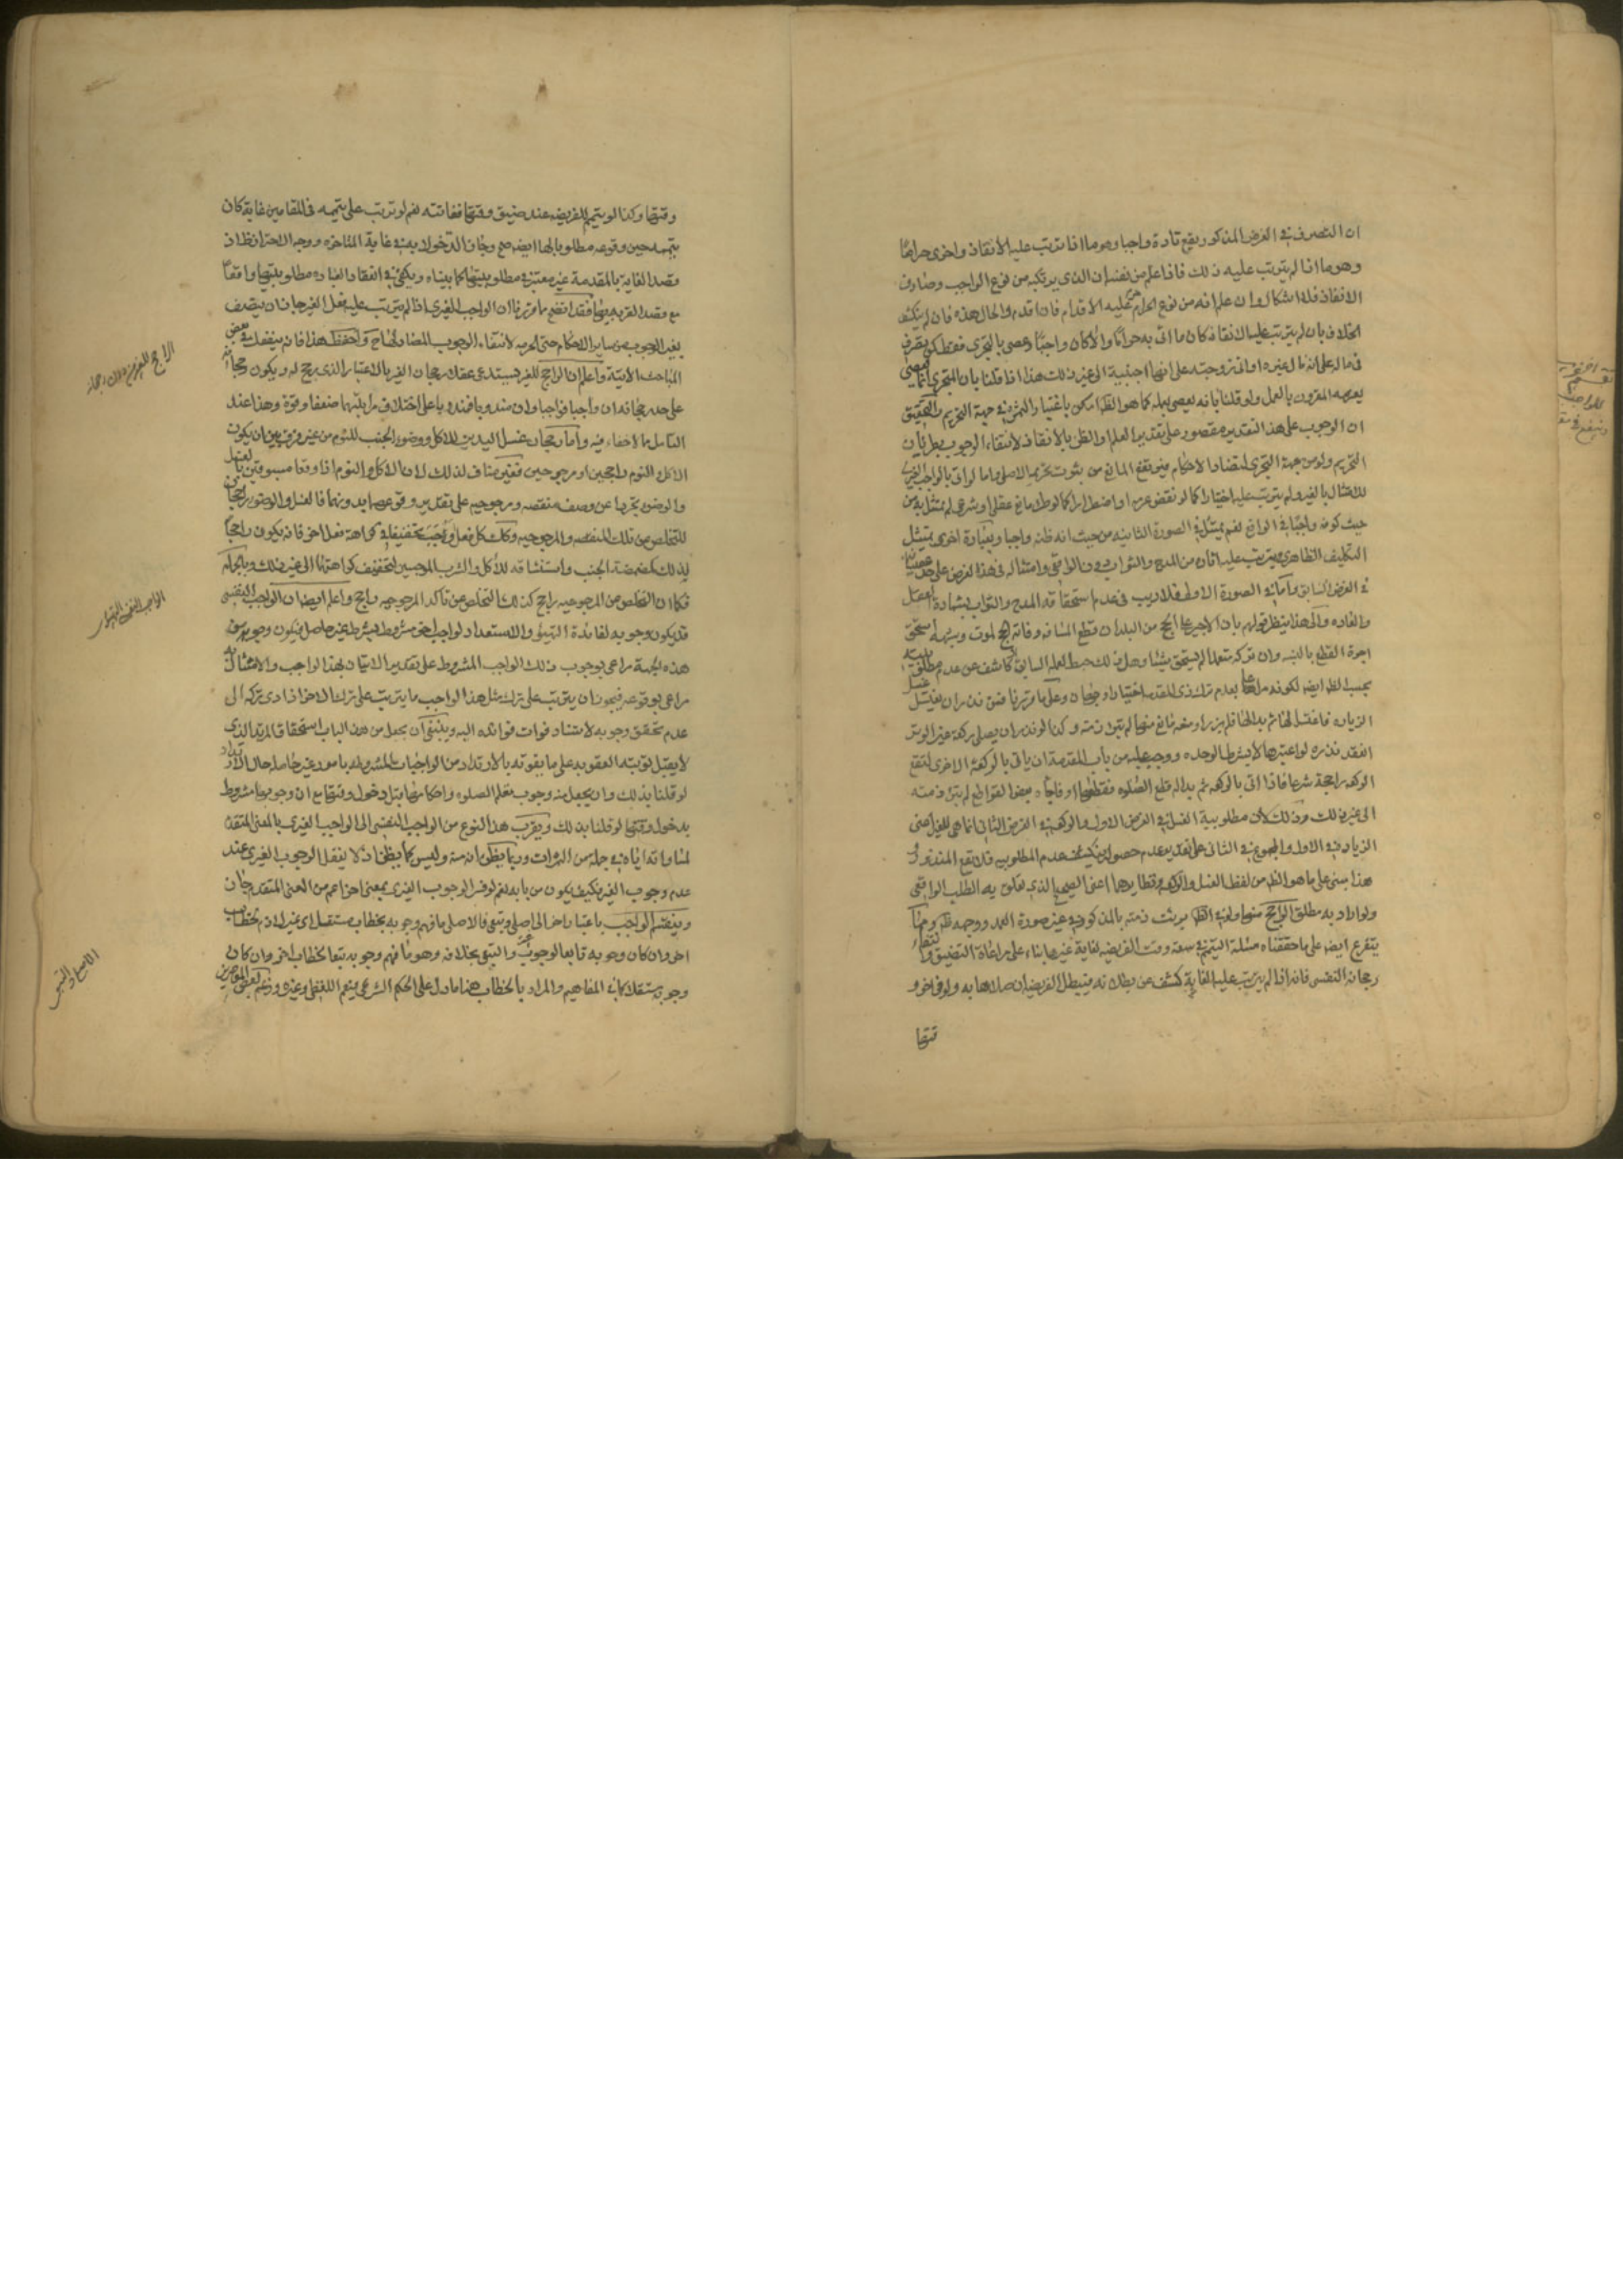 ان التصرف في الفرض المذكور يقع تارة واجبا وهو ما اذا ترتب عليه الانقاذ واخرى حراما
وهو ما اذا لم يترتب عليه ذلك فاذا علم من نفسه ان الذي يرتكبه من نوع الواجب وصادف
الانقاذ فلا اشكال وان علم انه من نوع الحرام حرم عليه الاقدام فان اقدم والحال هذه فان لم ينكشف
الخلاف بان لم يترتب عليه الانقاذ كان ما اتى به حراما والا كان واجبا وعصى بالتجري فقط كمن تصرف
في ماله على انه مال غيره او اتى زوجته على انها اجنبية الى غير ذلك هذا اذا قلنا بان المتجري انما يعصى
بعزمه المقرون بالعمل ولو قلنا بانه يعصى بهما كما هو الظ امكن باعتبار الثمرة في جهة التحريم والتحقيق
ان الوجوب على هذا التقدير مقصور على تقدير العلم او الظن بالانقاذ لانتفاء الوجوب بطريان
التحريم ولو من جهة التجري لتضاد الاحكام فيرتفع المانع من ثبوت تحريمه الاصلي واما لو اتى بالواجب الغيري
للامتثال بالغير ولم يترتب عليه اختيارا كما لو نقض عزمه او اضطرارا كما لو طرء مانع عقلي او شرعي لم يمتثل به من
حيث كونه واجبا في الواقع نعم يمتثل في الصورة الثانية من حيث انه ظنه واجبا وبعبارة اخرى يمتثل
التكليف الظاهري ويترتب عليه اثاره من المدح والثواب دون الواقعي وامتثاله في هذا الفرض على حد عصيانه
في الفرض السابق واما في الصورة الاولى فلا ريب في عدم استحقاقه المدح والثواب بشهادة العقل
والعادة والى هذا ينظر قولهم بان الاجير على الحج من البلد ان قطع المسافة وفاته الحج لموت وشبهه استحق
اجرة القطع بالنسبة وان تركه متعمدا لم يستحق شيئا وهل ذلك حبط لعمله السابق او كاشف عن عدم مطلوبيته
بحسب الظ ايضا لكونه مراعا بعدم ترك ذي المقدمة اختيارا وجهان وعلى ما قررنا فمن نذر ان يغتسل غسل
الزيارة فاغتسل لها ثم بدا له فلم يزر او منعه مانع منها لم تبرء ذمته وكذا لو نذر ان يصلي ركعة غير الوتر
انعقد نذره لو اعتبرها لا بشرط الوحدة ووجب عليه من باب المقدمة ان ياتي بالركعة الاخرى لتقع
الركعة راجحة شرعا فاذا اتى بالركعة ثم بدا له قطع الصلوة فقطعها او فاجاه بعض القواطع لم تبرء ذمته
الى غير ذلك وذلك لان مطلوبية الغسل في الفرض الاول والركعة في الفرض الثاني انما هي للغير اعنى
الزيارة في الاول والمجموع في الثاني فعلى تقدير عدم حصوله ينكشف عدم المطلوبية فلا يقع المنذور
هذا مبني على ما هو الظ من لفظ الغسل والركعة ونظايرهما اعني الصحيح الذي تعلق به الطلب الواقعي
ولو اراد به مطلق الراجح منها ولو في الظ برئت ذمته بالمذكور في غير صورة العمد ووجهه ظ ومما
يتفرع ايضا على ما حققناه مسئلة التيمم في سعة وقت الفريضة لغاية غيرها بناء على مراعاة التضييق وانتفاء
رجحانه النفسي فانه اذا لم يترتب عليه الغاية كشف عن بطلانه فيبطل الفريضة ان صلاها به ولو في اخر و
قتها
وقتها وكذا لو تيمم للفريضة عند ضيق وقتها ففاتته نعم لو ترتب على تيممه في المقامين غاية كان
تيممه حين وقوعه مطلوبا لها ايضا صح وجاز الدخول به في غاية المتاخرة ووجه الاحتراز ظ اذ
قصد الغاية بالمقدمة غير معتبر في مطلوبيتها كما بيناه ويكفي في انعقاد العبادة مطلوبيتها واقعا
مع قصد القربة بها فقد اتضح بما قررنا ان الواجب الغيري اذا لم يترتب عليه فعل الغير جاز ان يتصف
بغير الوجوب من ساير الاحكام حتى الحرمة لانتفاء الوجوب المضاد لها ح واحفظ هذا فانه ينفعك في بعض
المباحث الاتية واعلم ان الراجح للغير يستدعي عقلا رجحان الغير بالاعتبار الذي يرجح له ويكون رجحانه
على حد رجحانه ان واجبا فواجبا وان مندوبا فمندوبا على اختلاف مراتبهما ضعفا وقوة وهذا عند
التامل مما لا خفاء فيه واما رجحان غسل اليدين للاكل ووضوء الجنب للنوم من غير فرق بين ان يكون
الاكل والنوم راجحين او مرجوحين فغير مناف لذلك لان الاكل والنوم اذا وقعا مسبوقين بالغسل
والوضوء تجردا عن وصف منقصة ومرجوحية على تقدير وقوعهما بدونهما فالغسل والوضوء راجحان
للتخلص من تلك المنقصة والمرجوحية وكك كل فعل يوجب تخفيفا في كراهة فعل اخر فانه يكون راجحا
لذلك كمضمضة الجنب واستنشاقه للاكل والشرب الموجبين لتخفيف كراهتهما الى غير ذلك وبالجملة
فكما ان التخلص من المرجوحية راجح كذلك التخلص عن تاكد المرجوحية راجح واعلم ايضا ان الواجب النفسي
قد يكون وجوبه لفائدة التهيؤ والاستعداد لواجب اخر مشروط بشرط غير حاصل فيكون وجوبه من
هذه الجهة مراعى بوجوب ذلك الواجب المشروط على تقدير الاتيان بهذا الواجب والامتثال به
مراعى بوقوعه فيجوز ان يترتب على ترك مثل هذا الواجب ما يترتب على ترك الاخر اذا ادى تركه الى
عدم تحقق وجوبه لاستناد فوات فوائده اليه وينبغي ان يجعل من هذا الباب استحقاق المرتد الذي
لا يقبل توبته العقوبة على ما يفوته بالارتداد من الواجبات المشروطة بامور غير حاصلة حال الارتداد
لو قلنا بذلك وان يجعل منه وجوب تعلم الصلوة واحكامها قبل دخول وقتها مع ان وجوبها مشروط
بدخول وقتها لو قلنا بذلك ويقرب هذا النوع من الواجب النفسي الى الواجب الغيري بالمعنى المتقدم
لمساواته اياه في جملة من الثمرات وربما يظن انه منه وليس كما يظن اذ لا يعقل الوجوب الغيري عند
عدم وجوب الغير فكيف يكون من بابه نعم لو فسر الوجوب الغيري بمعنى اخر اعم من المعنى المتقدم جاز ان
وينقسم الواجب باعتبار اخر الى اصلي وتبعي فالاصلي ما فهم وجوبه بخطاب مستقل اي غير لازم لخطاب
اخر وان كان وجوبه تابعا لوجوب غيره والتبعي بخلافه وهو ما فهم وجوبه تبعا لخطاب اخر وان كان
وجوبه مستقلا كما في المفاهيم والمراد بالخطاب هنا ما دل على الحكم الشرعي فيعم اللفظي وغيره وزعم بعض المعاصرين
الواجب النفسي التهيؤي
الاصلي والتبعي